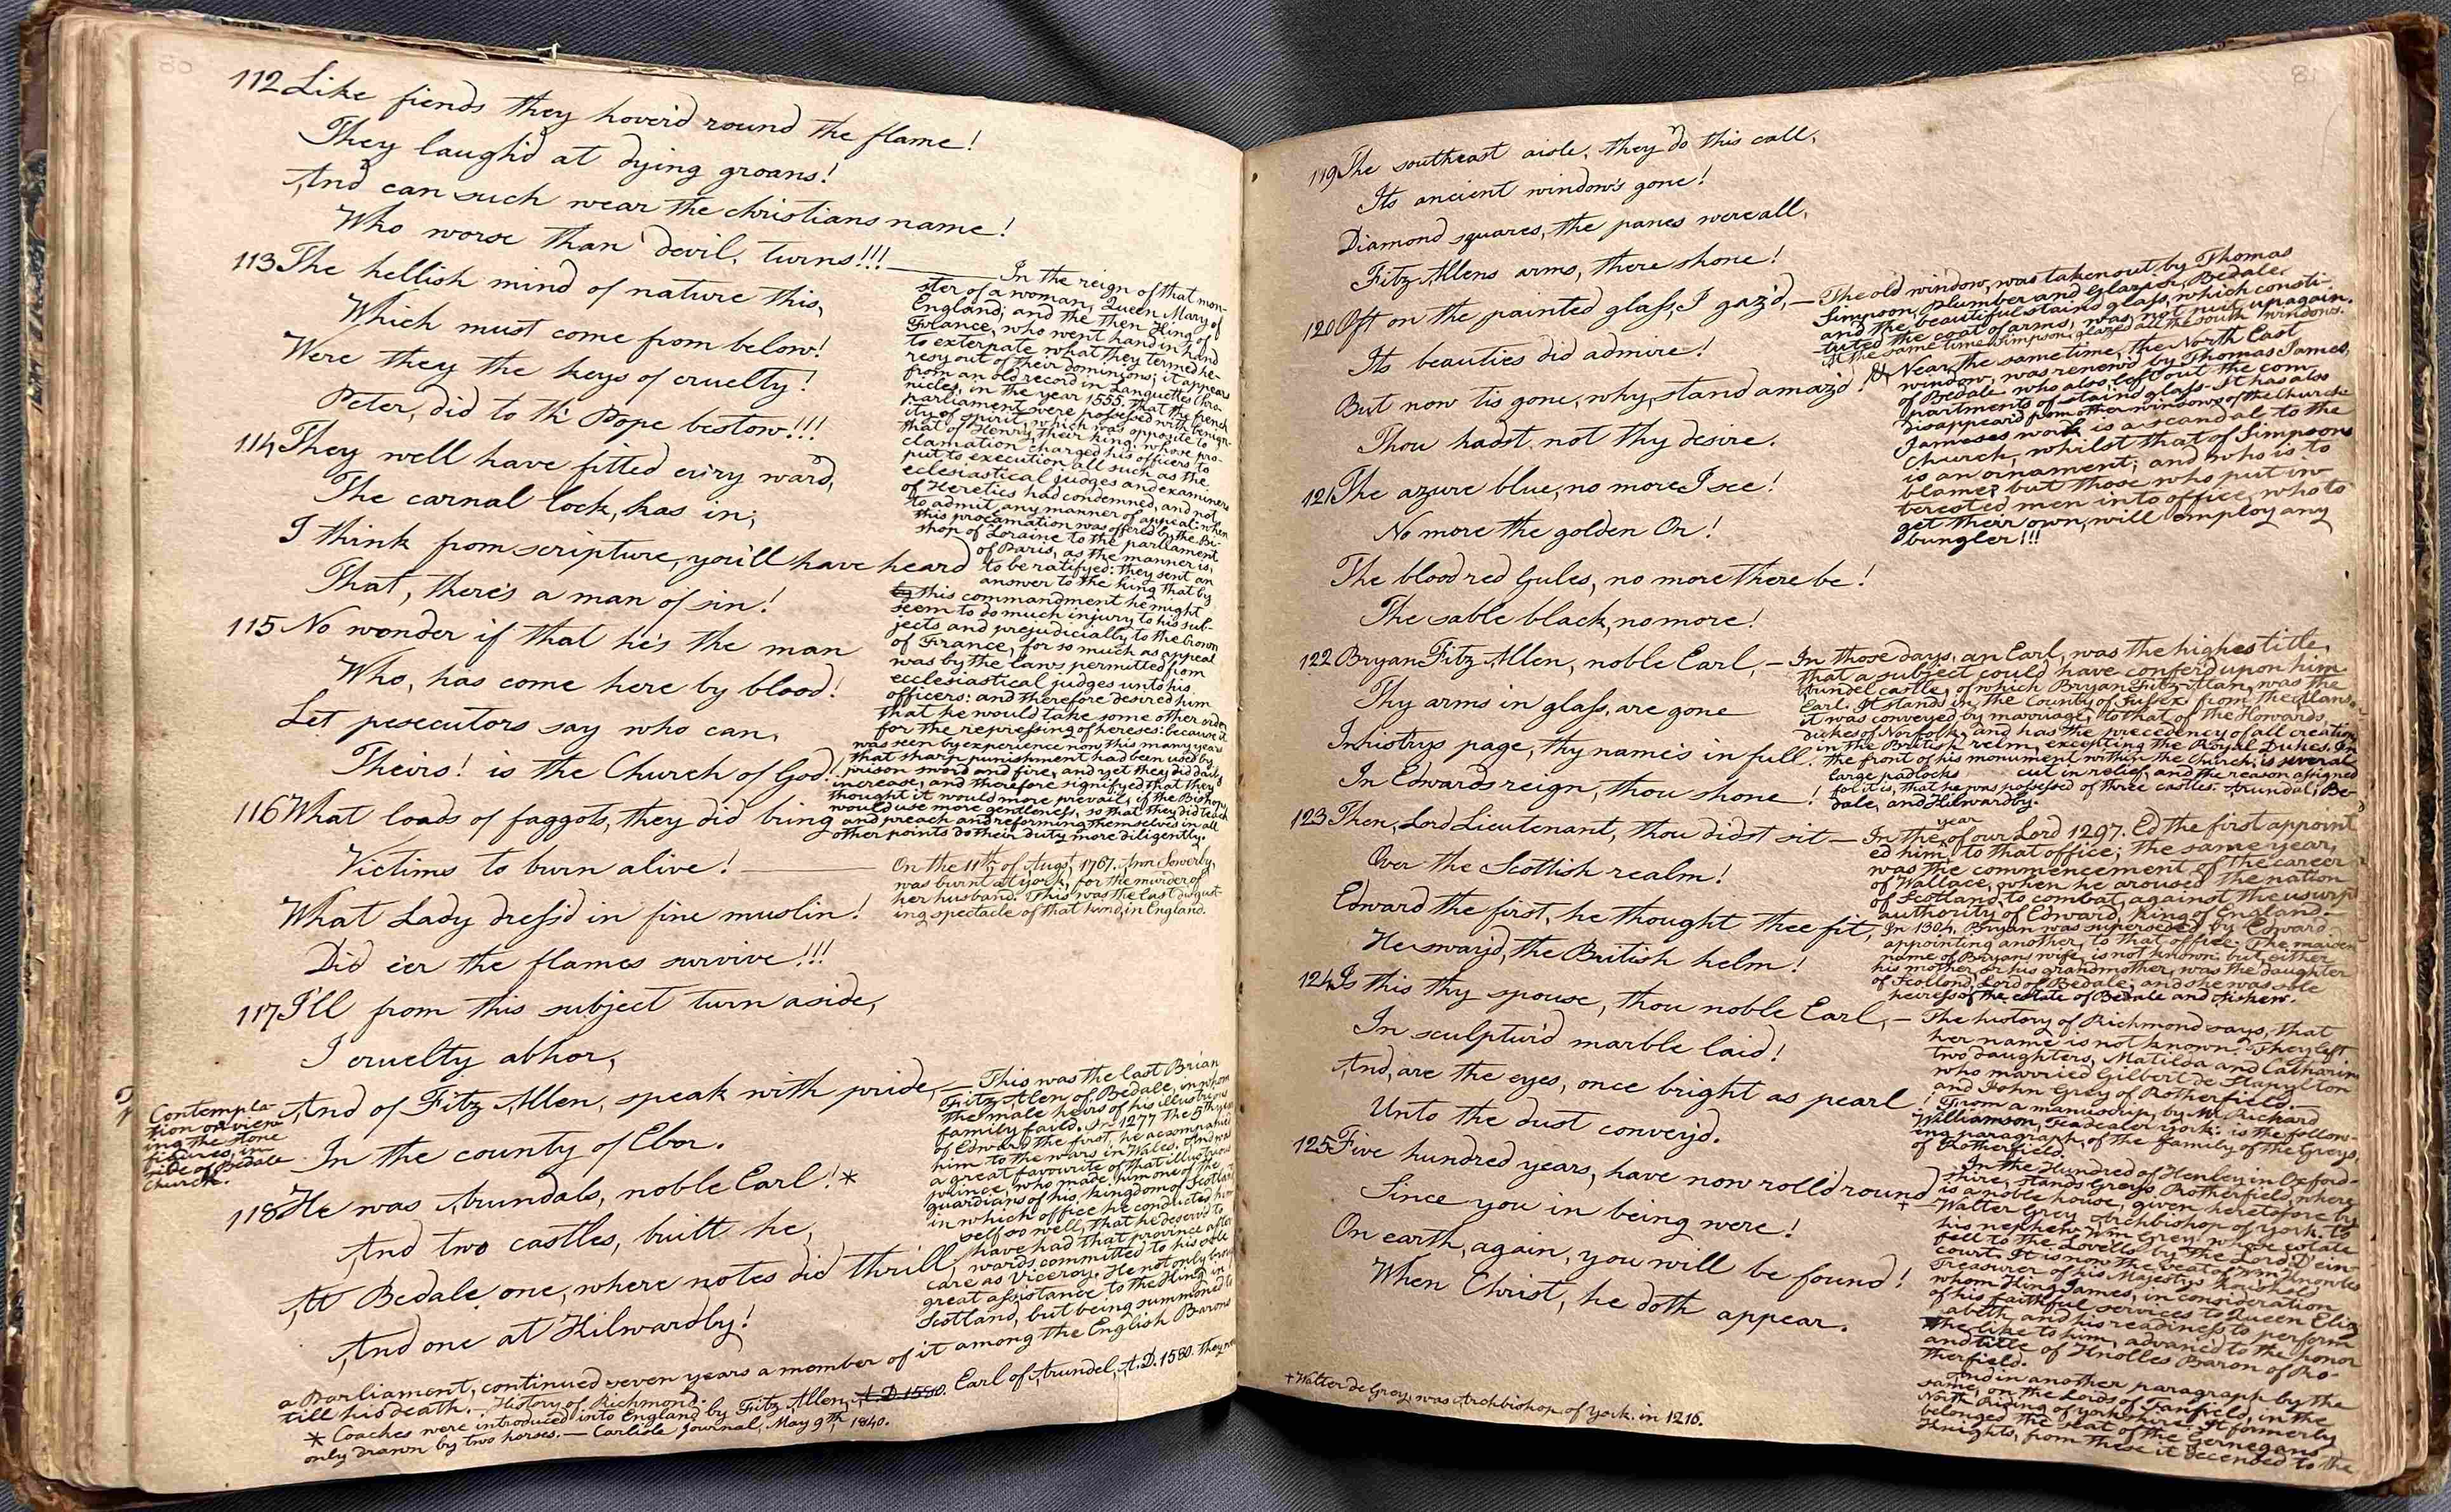 80
112 Like fiends they hover'd round the flame!
They laugh'd at dying groans!
And can such wear the christians name!
Who worse than devil, turns!!!
113 The hellish mind of nature this,
Which must come from below!
Were they the keys of cruelty!
Peter, did to th' Pope bestow!!!
114 They well have fitted ev'ry ward,
The carnal lock, has in;
I think from scripture, you'll have heard
That, there's a man of sin!
115 No wonder if that he's the man
Who, has come here by blood!
Let pesecutors say who can,
Theirs! is the Church of God!
116 What loads of faggots, they did bring
Victims to burn alive!
What Lady dress'd in fine muslin!
Did e'er the flames survive!!!
117 I'll from this subject turn aside,
I cruelty abhor,
And of Fitz Allen, speak with pride,
In the county of Ebor.
118 He was Arundals, noble Earl!*
And two castles, built he,
At Bedale one, where notes did thrill,
And one at Kilwardby!
In the reign of that mon-
ster of a woman, Queen Mary of
England; and the then King of
France, who went hand in hand
to exterpate what they termed he-
resy out of their dominions; it appears
from an old record in Lanquettes Chro-
nicles, in the year 1555, that the french
parliament were possessed with benign-
ity of spirit, which was opposite to
that of Henry, their king, whose pro-
clamation charged his officers to
put to execution all such as the
eclesiastical judges and examiners
of Heretics had condemned, and not
to admit any manner of appeal: when
this proclamation was offered by the Bi-
shop of Loraine to the parliament
of Paris, as the manner is,
to be ratifyed: they sent an
answer to the king that by
by this commandment he might
seem to do much injury to his sub-
jects and prejudicially to the Crown
of France, for so much as appeal
was by the laws permitted from
ecclesiastical judges unto his
officers: and therefore desired him
that he would take some other order
for the repressing of hereses: because it
was seen by experience now this many years
that sharp punishment had been used by
prison sword and fire, and yet they did daily
increase, and therefore signifyed that they
thought it would more prevail, if the Bishops
would use more gentleness, so that they did teach
and preach and reforming themselves in all
other points do their duty more diligently.
On the 11th of Augst, 1767. Ann Sowerby,
was burnt at york, for the murder of
her husband. This was the last disgust-
ing spectacle of that kind, in England.
Contempla-
tion on view-
ing the stone
figures, in-
side of Bedale
Church.
This was the last Brian
Fitz Alen of Bedale, in whom
the male heirs of his illustrious
family fail'd. In 1277 the 5th year
of Edward the first, he acompanied
him to the wars in Wales. And was
a great favourite of that illustrious
prince, who made him one of the
guardians of his kingdom of Scotland,
in which office he conducted him
self so well, that he deserv'd to
have had that province after
wards committed to his sole
care as Viceroy. He not only brou
great assistance to the King in
Scotland, but being summoned to
a Parliament, continued seven years a member of it among the English Barons
till his death. — History of Richmond.
* Coaches were introduced into England by Fitz Allen, A.D. 1580. Earl of Arundel, A.D. 1580. They were
only drawn by two horses. — Carlisle Journal, May 9th, 1840.
81
119 The southeast aisle, they do this call,
Its ancient window's gone!
Diamond squares, the panes were all,
Fitz Allens arms, there shone!
120 Oft on the painted glass, I gaz'd,
Its beauties did admire!
But now tis gone, why, stand amaz'd!
Thou hadst not thy desire.
121 The azure blue, no more I see!
No more the golden Or!
The blood red Gules, no more there be!
The sable black, no more!
122 Bryan Fitz Allen, noble Earl,
Thy arms in glass, are gone
In histrys page, thy name's in full.
In Edwards reign, thou shone!
123 Then, Lord Lieutenant, thou didst sit
Over the Scottish realm!
Edward the first, he thought thee fit,
He sway'd, the British helm!
124 Is this thy spouse, thou noble Earl,
In sculptur'd marble laid!
And, are the eyes, once bright as pearl!
Unto the dust convey'd.
125 Five hundred years, have now roll'd round
Since you in being were!
On earth, again, you will be found!
When Christ, he doth appear.
The old window, was taken out by Thomas
Simpson, Plumber and Glazier, Bedale.
and the beautiful stain'd glass, which consti-
tuted the coat of arms, was not put up again.
At the same time Simpson, glazed all the south windows.
Near the same time, the North East
window, was renew'd by Thomas James,
of Bedale, who also, left out the com-
partments of stain'd glass. It has also
disappear'd from other windows of the Church.
Jameses work is a scandal to the
Church, whilst that of Simpsons
is an ornament; and who is to
blame? but those who put in-
terested men into office, who to
get their own, will employ any
bungler!!!
In those days, an Earl, was the highest title,
that a subject could have confer'd upon him.
Arundel castle, of which Bryan Fitz Alan, was the
Earl. It stands in the County of Sussex from the Alans,
it was conveyed by marriage, to that of the Howards,
Dukes of Norfolk, and has the precedency of all creation
in the British relm, excepting the Royal Dukes. In
the front of his monument within the Church, is several
large padlocks cut in relief, and the reason assigned
for it is, that he was possessed of three castles. Arundal, Be-
dale, and Kilwardby.
In the year of our Lord 1297. Ed the first appoint
ed him, to that office; the same year,
was the commencement of the career
of Wallace, when he aroused the nation
of Scotland, to combat, against the usurp'd
authority of Edward, King of England.
In 1304. Bryan was superseded, by Edward.
appointing another, to that office. The maiden
name of Bryans wife, is not known: but either
his mother, or his grandmother, was the daughter
of Scolland, Lord of Bedale, and she was sole
heiress of the estate of Bedale and Askew.
The history of Richmond says, that
her name is not known. They left
two daughters, Matilda and Catharine
who married Gilbert de Stapylton
and John Grey of Rotherfield.
From a manuscrip, by Mr Richard
Williamson, teadealer york: is the follow-
ing paragraph, of the family of the Greys,
of Rotherfield.
In the Hundred of Henley, in Oxford-
shire, stands Greys Rotherfield, where
is a noble house, given heretofore by
+ Walter Grey Archbishop of york. to
his nephew Wm Grey, whose estate
fell to the Lovells by the Lord Dein-
court. It is now the seat of Wm Knowles
Treasurer of his Majestys houshold
whom King James, in consideration
of his faithful services to Queen Eliz
abeth, and his readiness to perform
the like to him, advanced to the honor
and title of Knolles Baron of Ro-
therfield.
And in another paragraph by the
same, on the Lords of Tanfield, in the
North Riding of yorkshire. It formerly
belonged the seat of the Gernegans
Knights, from these it decended to the
+ Walter de Grey, was Archbishop of york. in 1216.